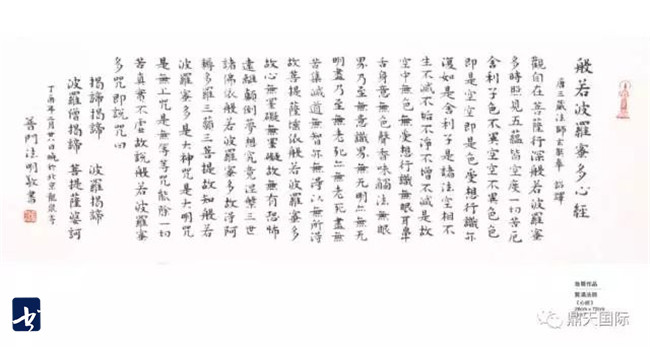 般若波羅蜜多心經
唐三藏法師玄奘奉 詔譯
觀自在菩薩行深般若波羅蜜
多時照見五蘊皆空度一切苦厄
舍利子色不異空空不異色色
即是空空即是色受想行識亦
復如是舍利子是諸法空相不
生不滅不垢不淨不增不減是故
空中無色無受想行識無眼耳鼻
舌身意無色聲香味觸法無眼
界乃至無意識界無無明亦無無
明盡乃至無老死亦無老死盡無
苦集滅道無智亦無得以無所得
故菩提薩埵依般若波羅蜜多
故心無罣礙無罣礙故無有恐怖
遠離顛倒夢想究竟涅槃三世
諸佛依般若波羅蜜多故得阿
耨多羅三藐三菩提故知般若
波羅蜜多是大神咒是大明咒
是無上咒是無等等咒能除一切
苦真實不虛故說般若波羅蜜
多咒即說咒曰
揭諦揭諦 波羅揭諦
波羅僧揭諦 菩提薩婆訶
丁酉年 月廿 日晚於北京龍泉寺
普門法明敬書
作品
法師
《心經》
鼎天国际